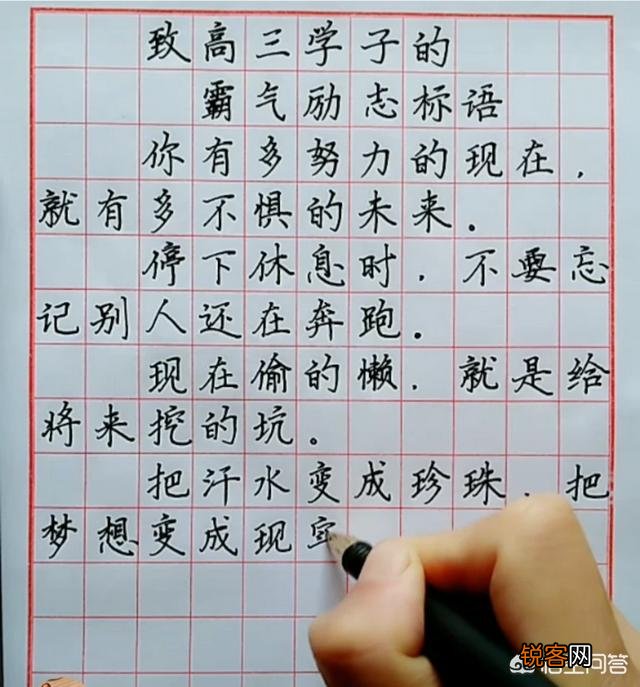 致高三学子的
霸气励志标语
你有多努力的现在,
就有多不惧的未来.
停下休息时,不要忘
记别人还在奔跑.
现在偷的懒,就是给
将来挖的坑。
把汗水变成珍珠,把
梦想变成现
锐客网
悟空问答